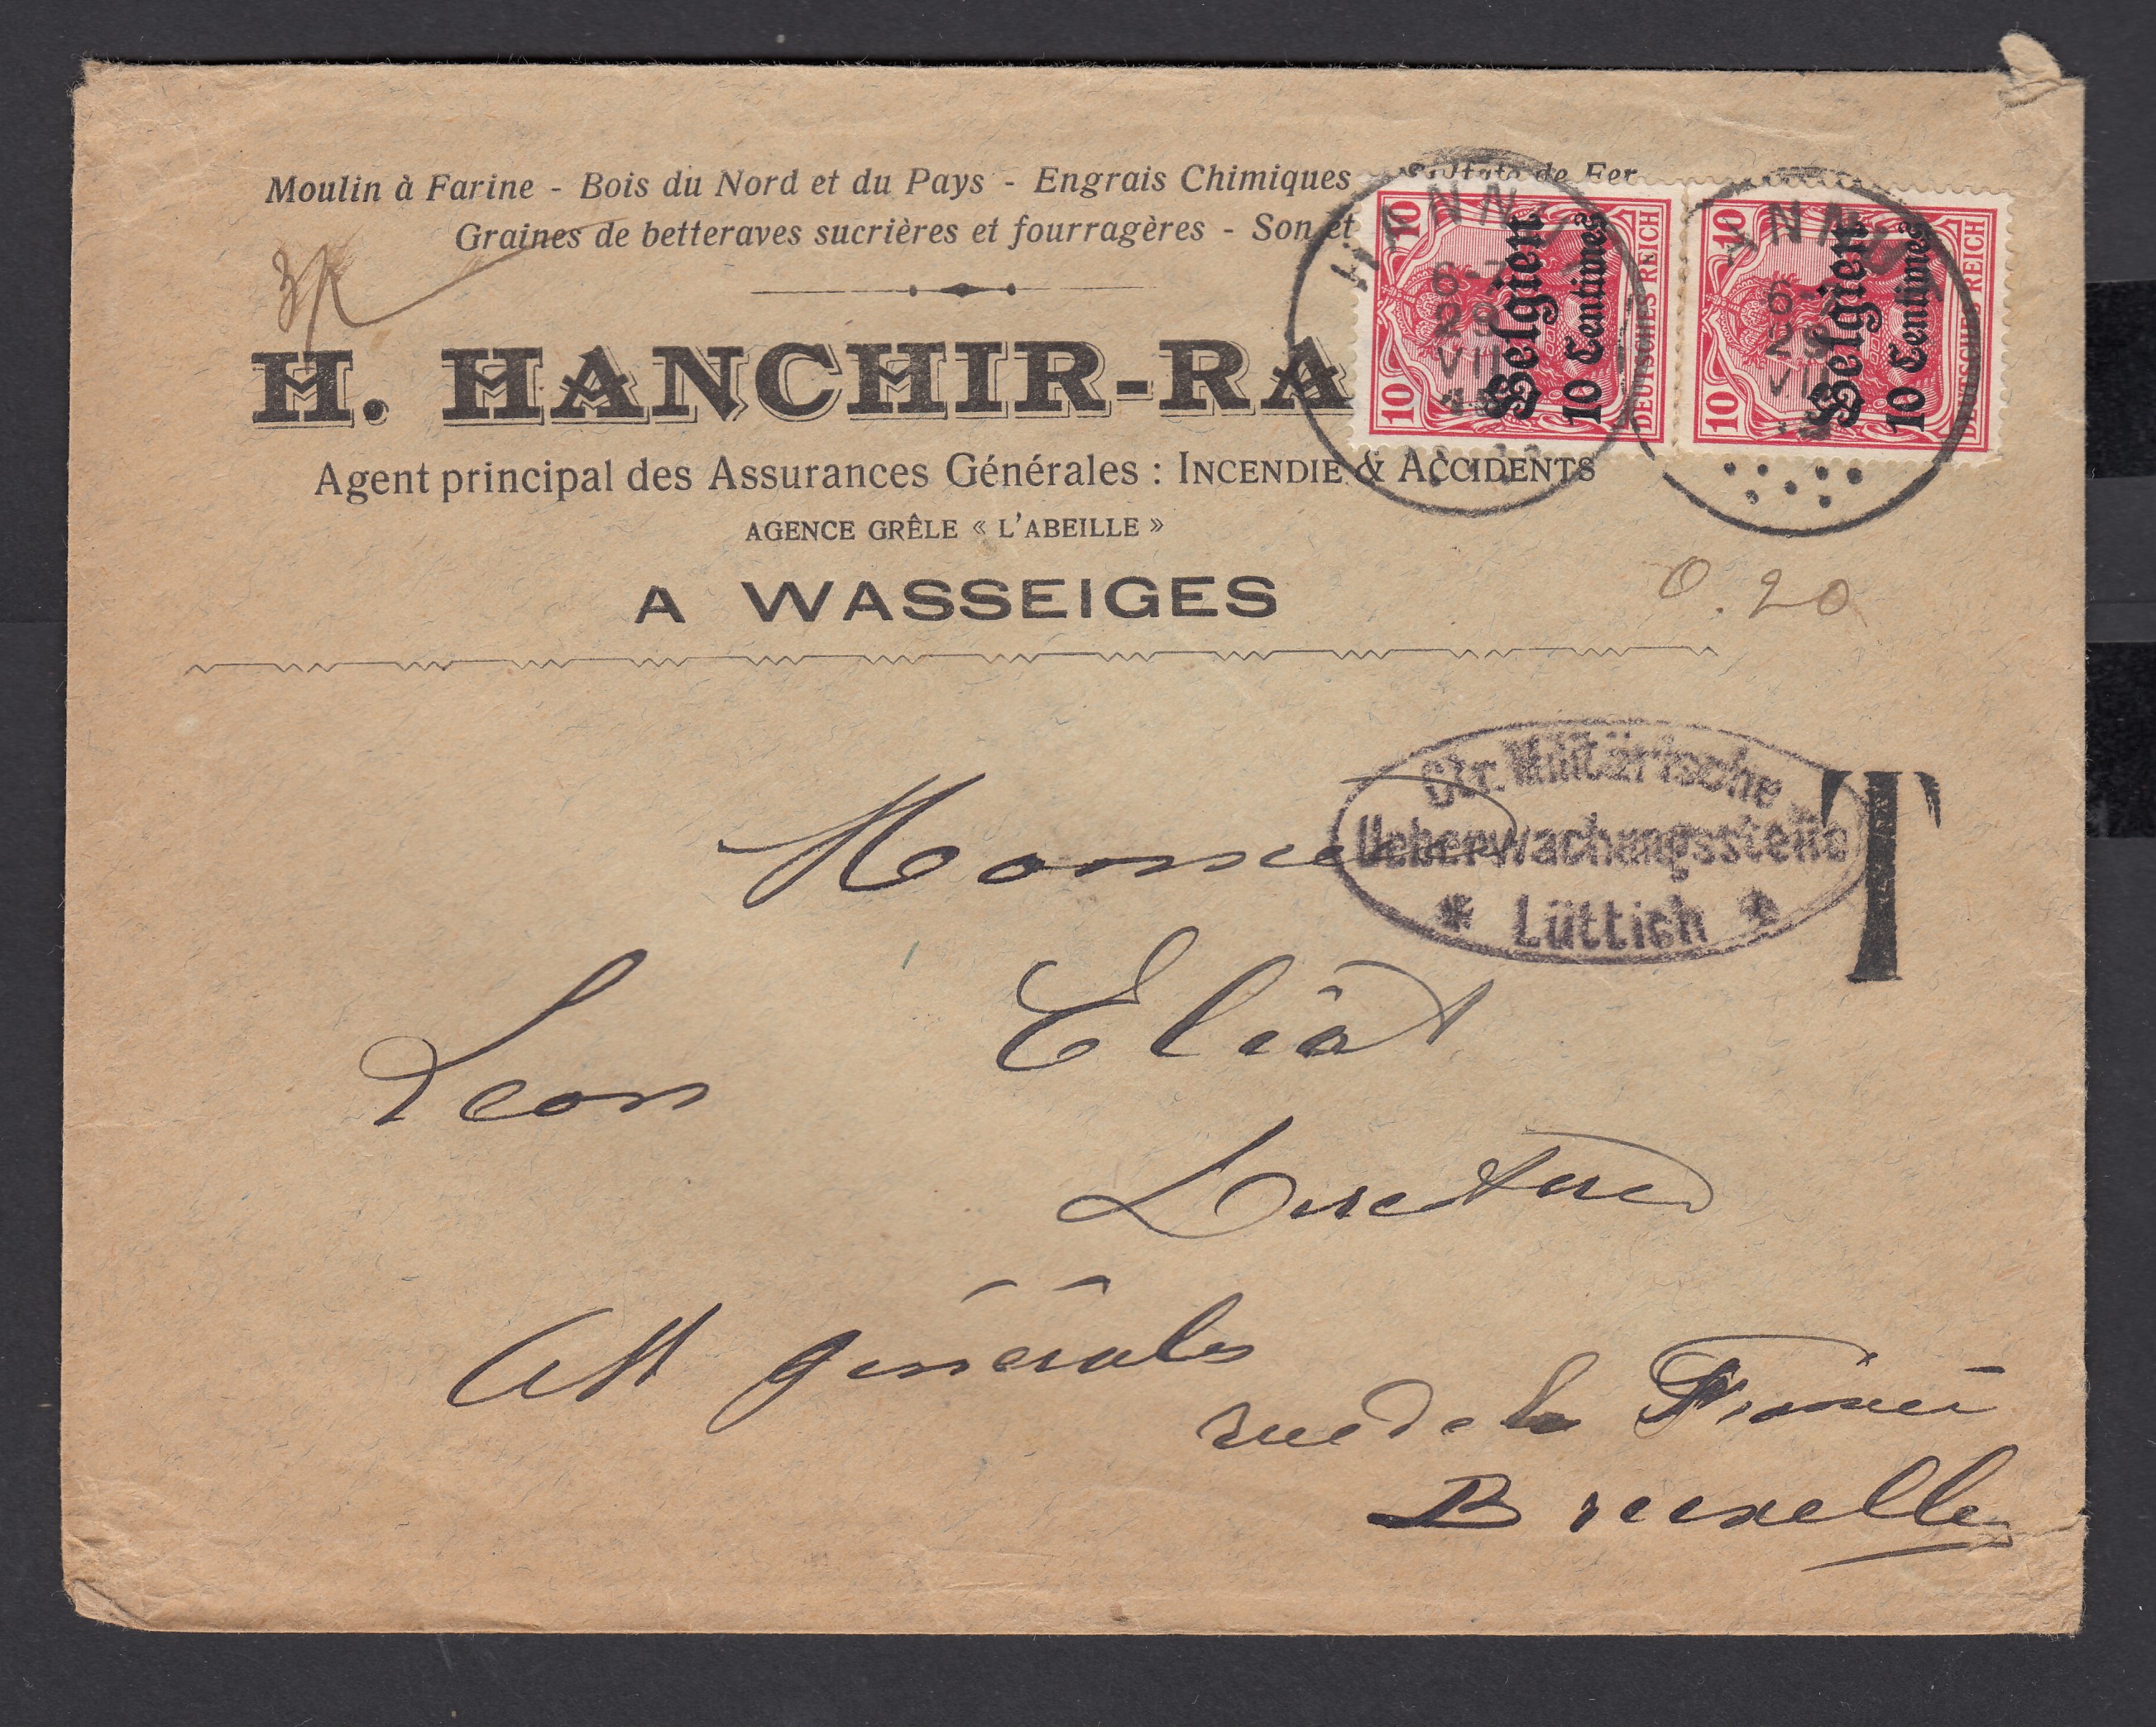 Moulin à Farine - Bois du Nord et du Pays - Engrais Chimiques - Sulfate de Fer
Graines de betteraves sucrières et fourragères - Son et
H. HANCHIR-RA
Agent principal des Assurances Générales : INCENDIE & ACCIDENTS
AGENCE GRÊLE « L'ABEILLE »
A WASSEIGES
10 10 DEUTSCHES REICH
Belgien
10 Centimes
HANNU
6-7
29
VII
10 10 DEUTSCHES REICH
Belgien
10 Centimes
NNU
0.20
Militärische
Ueberwachungsstelle
* Lüttich *
T
Monsieur
Leon Eliat
Directeur
Ass générales
rue de la
Bruxelles